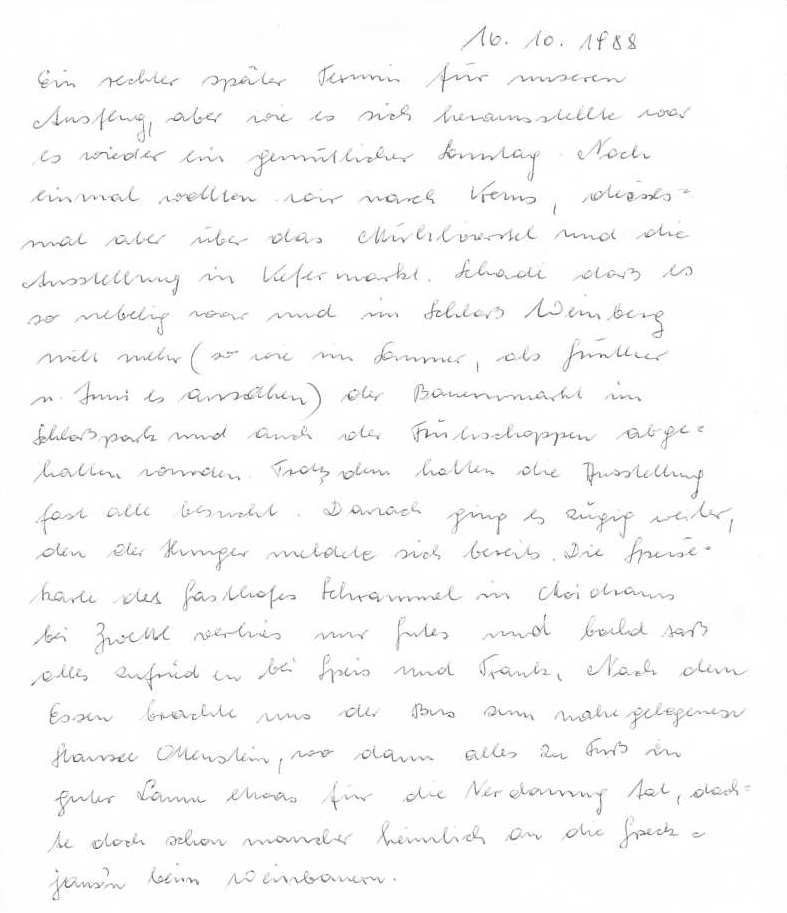 16. 10. 1988
Ein rechter später Termin für unseren
Ausflug, aber wie es sich herausstellte war
es wieder ein gemütlicher Sonntag. Noch
einmal wollten wir nach Krems, dieses=
mal aber über das Mühlviertel und die
Ausstellung in Kefermarkt. Schade daß es
so nebelig war und im Schloß Weinberg
nicht mehr (so wie im Sommer, als Günther
u. Inni es ansahen) der Bauernmarkt im
Schloßpark und auch der Frühschoppen abge=
halten wurden. Trotzdem hatten die Ausstellung
fast alle besucht. Danach ging es zügig weiter,
den der Hunger meldete sich bereits. Die Speise=
karte des Gasthofes Schrammel in Moidrams
bei Zwettl verhies nur Gutes und bald saß
alles zufrieden bei Speis und Trank. Nach dem
Essen brachte uns der Bus zum nahe gelegenen
Stausee Ottenstein, wo dann alles zu Fuß in
guter Laune etwas für die Verdauung tat, dach=
te doch schon mancher heimlich an die Speck=
jaus'n beim Weinbauern.